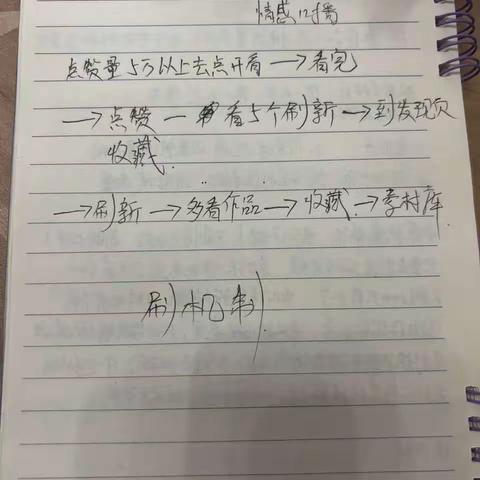 情感口播
点赞量5万以上去点开看→看完
→点赞—看5个刷新→到发现页
收藏.
→刷新→多看作品→收藏→素材库
刷机制